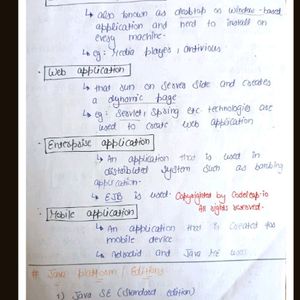 ↳ also known as desktop or window-based
application and need to install on
every machine.
↳ eg: Media player, antivirus
· Web application
↳ that run on server side and creates
a dynamic page
↳ eg: Servlet, Spring etc technologies are
used to create web application
· Enterprise application
↳ An application that is used in
distributed system such as banking
application.
↳ EJB is used. Copyrighted by Codeleap.io
All rights reserved.
· Mobile application
↳ An application that is created for
mobile device
↳ Android and Java ME used
# Java platform / Editions
1) Java SE (Standard edition)